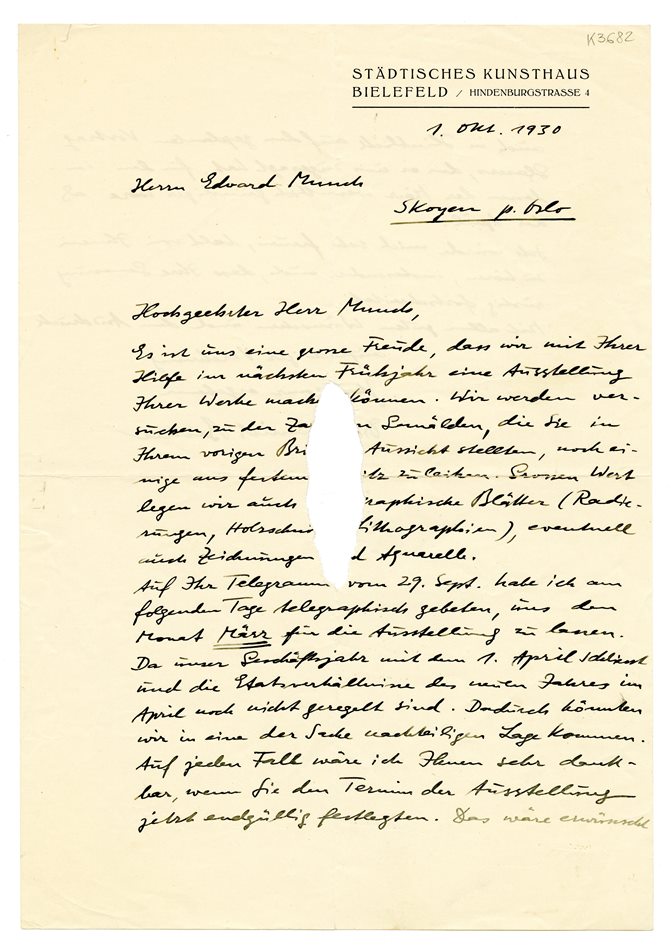 K3682
STÄDTISCHES KUNSTHAUS
BIELEFELD / HINDENBURGSTRASSE 4
1. Okt. 1930
Herrn Edvard Munch
Skoyen p. Oslo
Hochgeehrter Herr Munch,
Es ist uns eine grosse Freude, dass wir mit Ihrer
Hilfe im nächsten Frühjahr eine Ausstellung
Ihrer Werke machen können. Wir werden ver-
suchen, zu der Za n Gemälden, die Sie in
Ihrem vorigen Bri Aussicht stellten, noch ei-
nige aus festem itz zu leihen. Grossen Wert
legen wir auch graphische Blätter (Radie-
rungen, Holzschni Lithographien), eventuell
auch Zeichnungen d Aquarelle.
Auf Ihr Telegramm vom 29. Sept. habe ich am
folgenden Tage telegraphisch gebeten, uns den
Monat März für die Ausstellung zu lassen.
Da unser Geschäftsjahr mit dem 1. April schliesst
und die Etatsverhältnisse des neuen Jahres im
April noch nicht geregelt sind. Dadurch könnten
wir in eine der Sache nachteiligen Lage kommen.
Auf jeden Fall wäre ich Ihnen sehr dank-
bar, wenn Sie den Termin der Ausstellung
jetzt endgültig festlegten. Das wäre erwünscht